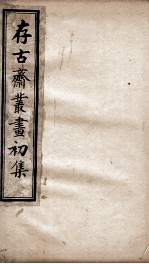 存古齋叢畫初集